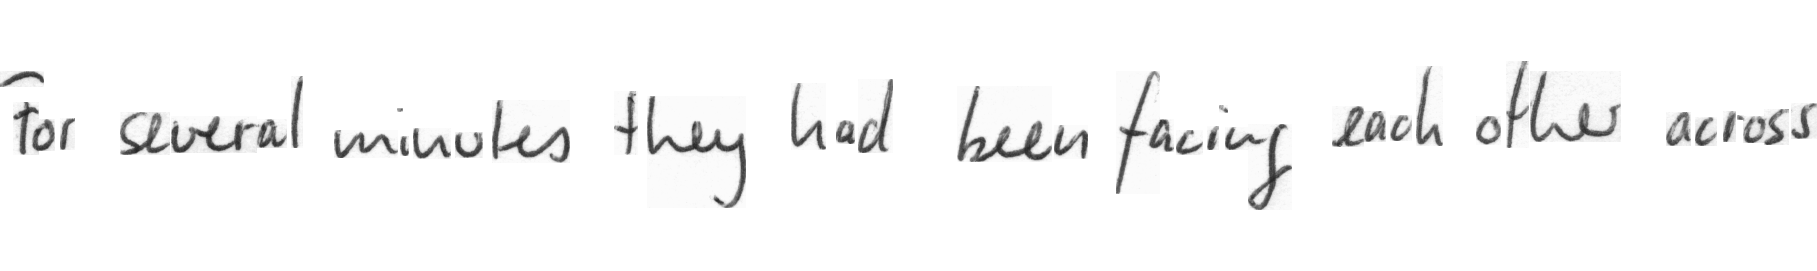 For several minutes they had been facing each other across